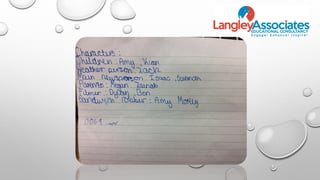 Langley Associates
EDUCATIONAL CONSULTANCY
Engage Enhance Inspire
Characters:
Children: Amy, Kian
Weather person: Zack
Main Newsperson: Isaac, Savannah
Parents: Megan,
Filmer: Dylan, Ben
Sandwich Maker: Amy, Molly